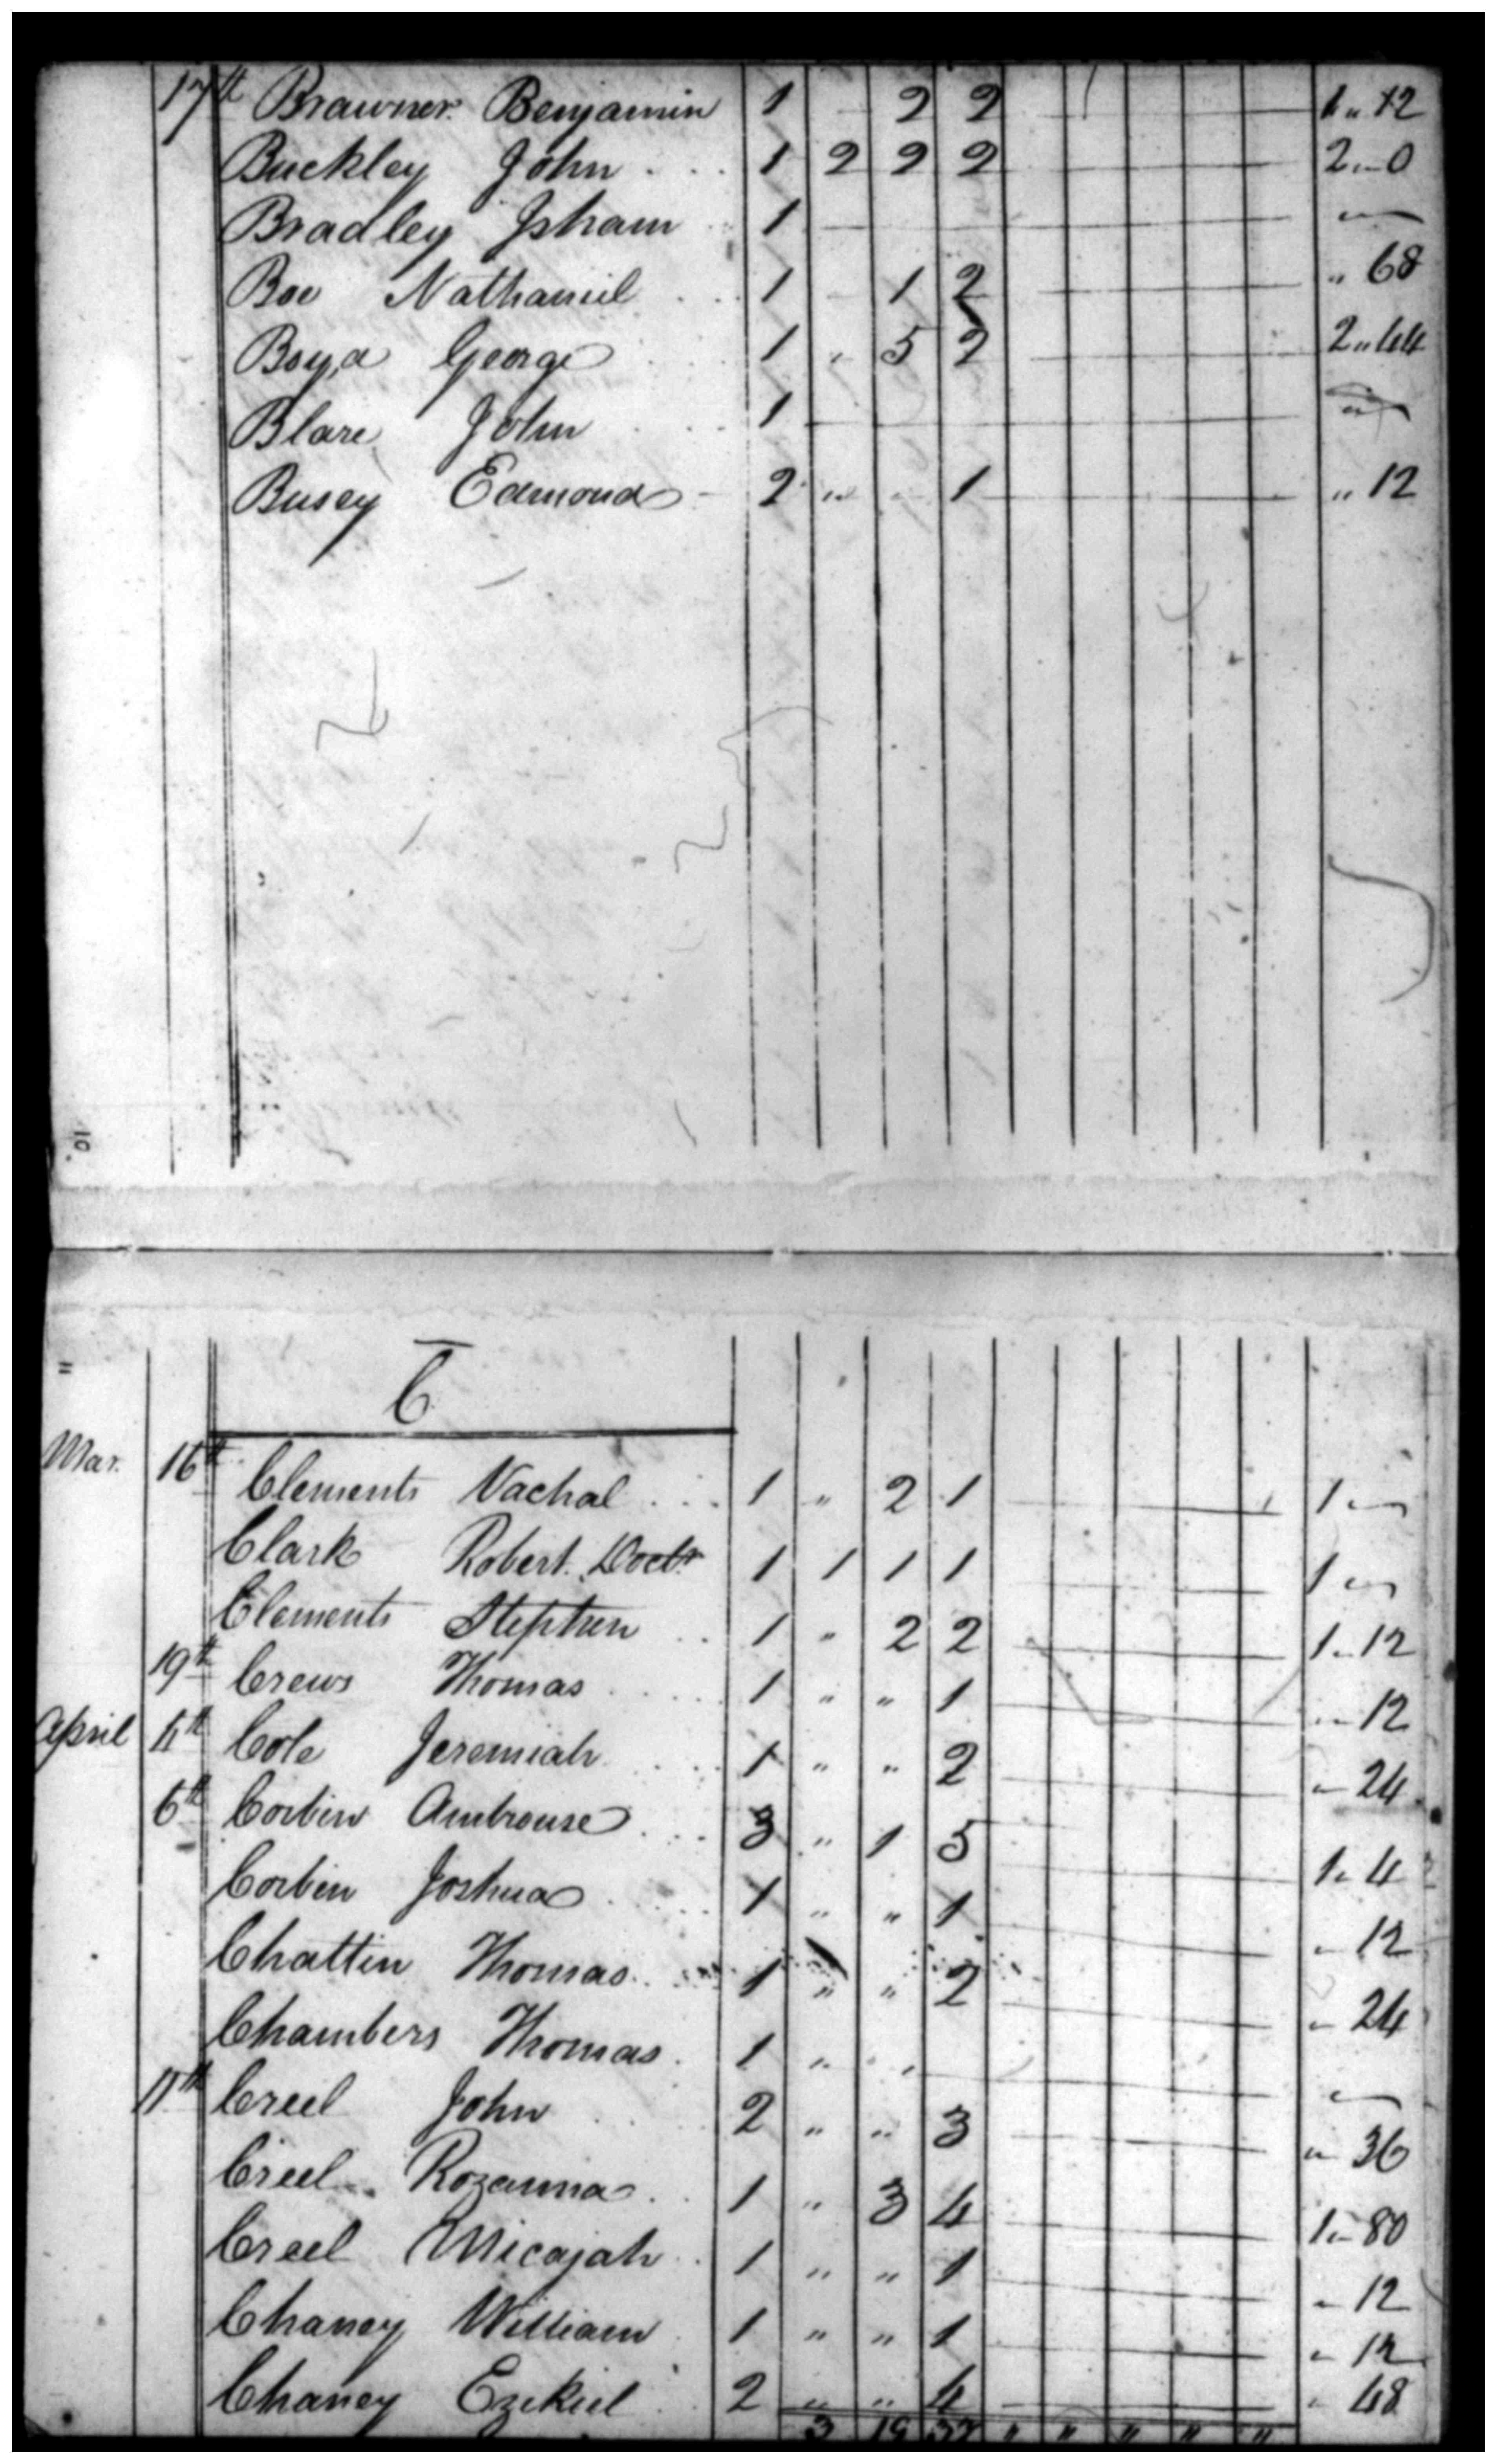 17th Brawner Benjamin 1 2 2 1 " 12
Buckley John 1 2 2 2 2 " 0
Bradley Isham 1
Boe Nathaniel 1 1 2 " 68
Boyd George 1 " 5 2 2 " 44
Blare John 1
Busey Edmond 2 " " 1 " 12
10
11
C
Mar. 16th Clements Vachal 1 " 2 1 1 "
Clark Robert Doctr 1 1 1 1 1 "
Clements Stephen 1 " 2 2 1 " 12
19th Crews Thomas 1 " " 1 " 12
April 4th Cole Jeremiah 1 " " 2 " 24
6th Corbin Ambrouse 3 " 1 5 1 " 4
Corbin Joshua 1 " " 1 " 12
Chattin Thomas 1 " " 2 " 24
Chambers Thomas 1 " "
11th Creel John 2 " " 3 " 36
Creel Rozanna 1 " 3 4 1 " 80
Creel Micajah 1 " " 1 " 12
Chaney William 1 " " 1 " 12
Chaney Ezekiel 2 " " 4 " 48
3 19 " " " " "